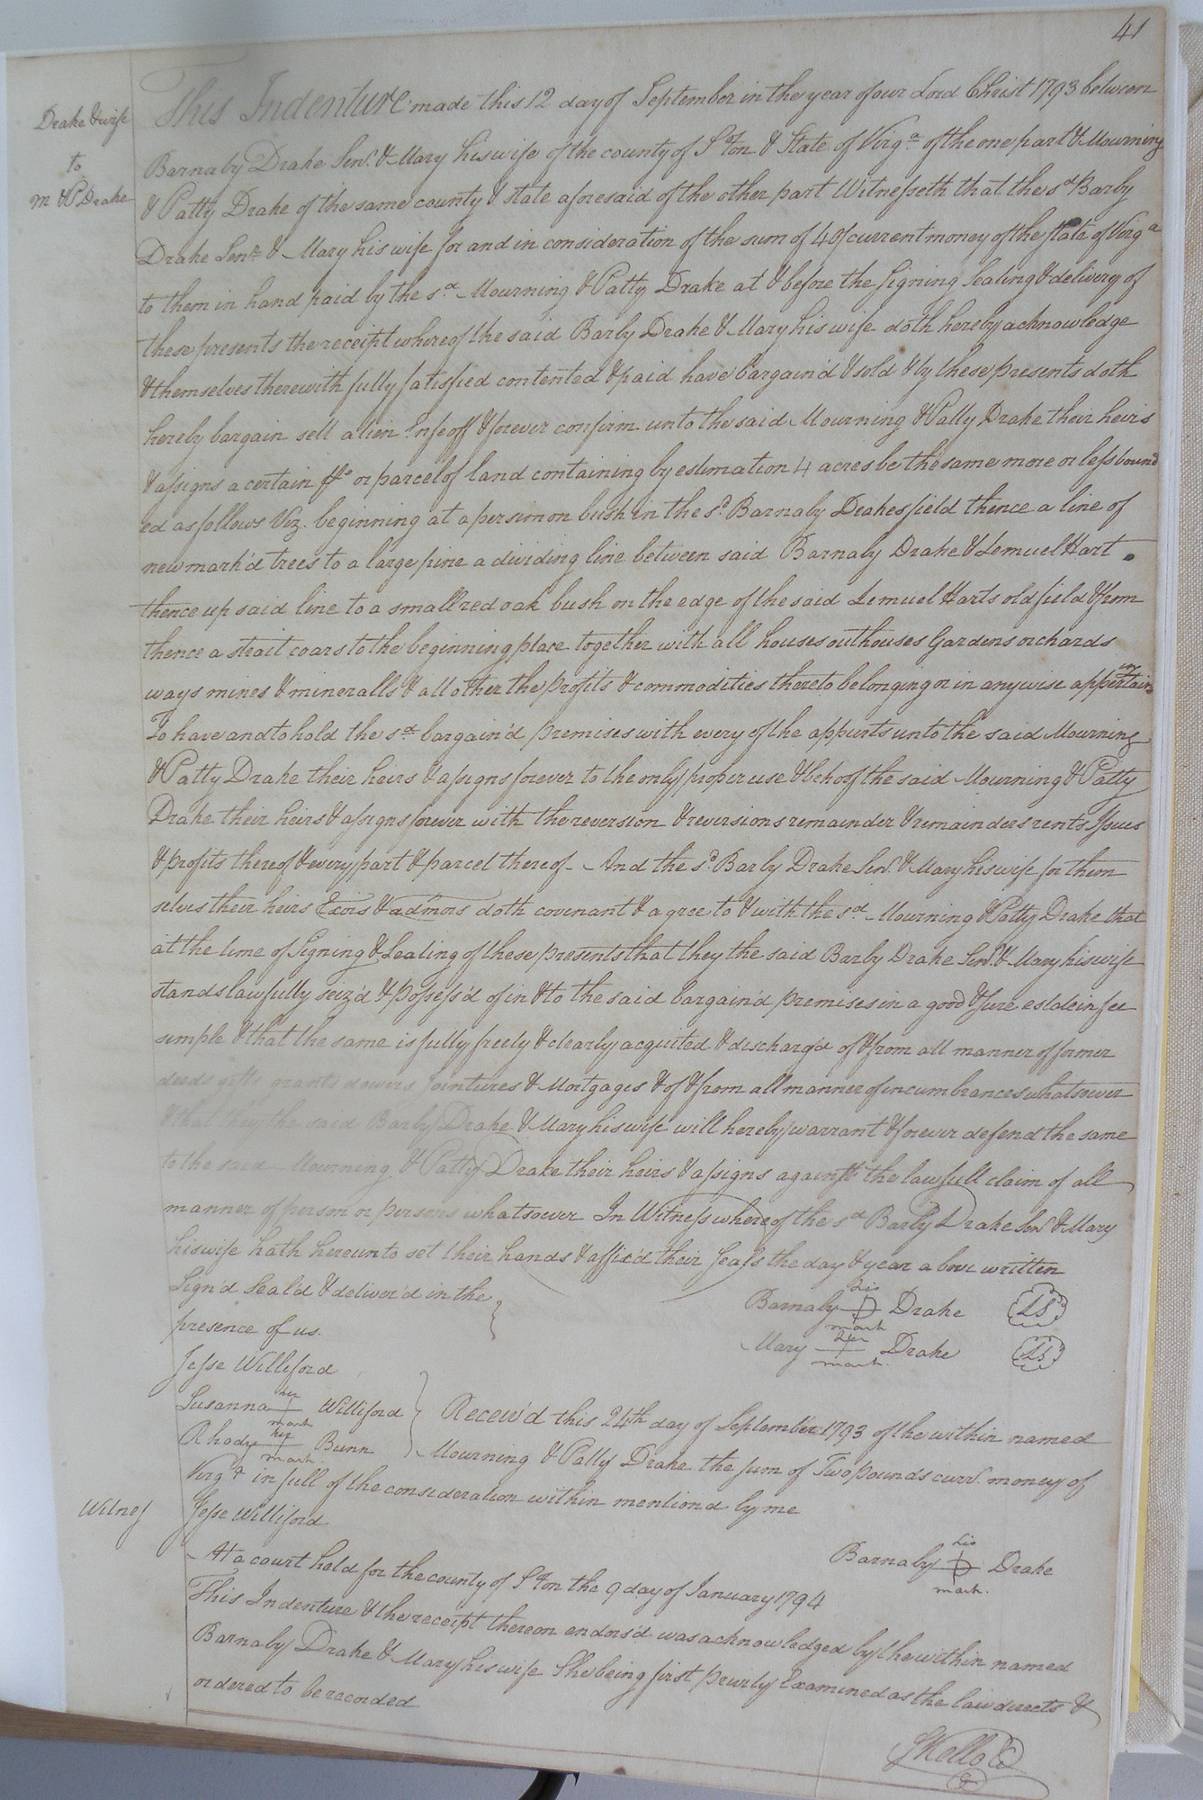 41
Drake & wife
to
M & P Drake
This Indenture made this 12 day of September in the year of our Lord Christ 1793 between
Barnaby Drake Senr. & Mary his wife of the county of S'ton & State of Virga of the one part & Mourning
& Patty Drake of the same county & state aforesaid of the other part Witnesseth that the sd Barby
Drake Senr. & Mary his wife for and in consideration of the sum of 40/ current money of the State of Virga
to them in hand paid by the sd. Mourning & Patty Drake at & before the signing sealing & delivery of
these presents the receipt whereof the said Barby Drake & Mary his wife doth hereby acknowledge
& themselves therewith fully satisfied contented & paid have bargain'd & sold & by these presents doth
hereby bargain sell alien Infeoff & forever confirm unto the said Mourning & Patty Drake their heirs
& assigns a certain or parcel of land containing by estimation 4 acres be the same more or less bound
ed as follows Viz. beginning at a persimon bush in the sd. Barnaby Drakes field thence a line of
new mark'd trees to a large pine a dividing line between said Barnaby Drake & Lemuel Hart
thence up said line to a small red oak bush on the edge of the said Lemuel Harts old field & from
thence a strait coars to the beginning place together with all houses outhouses Gardens orchards
ways mines & mineralls & all other the profits & commodities thereto belonging or in anywise appertain
ing
To have and to hold the sd. bargain'd premises with every of the appurts unto the said Mourning
& Patty Drake their heirs & assigns forever to the only proper use & behoof the said Mourning & Patty
Drake their heirs & assigns forever with the reversion & reversions remainder & remainders rents Issues
& profits thereof & every part & parcel thereof - And the sd. Barby Drake Senr. & Mary his wife for them
selves their heirs Exors & admors doth covenant & agree to & with the sd. Mourning & Patty Drake that
at the time of Signing & Sealing of these presents that they the said Barby Drake Senr. & Mary his wife
stands lawfully seiz'd & possess'd of in & to the said bargain'd premises in a good & sure estate in fee
simple & that the same is fully freely & clearly acquited & discharg'd of & from all manner of former
deeds gifts grants dowers Jointures & Mortgages & of & from all manner of incumbrances whatsoever
& that they the said Barby Drake & Mary his wife will hereby warrant & forever defend the same
to the said Mourning & Patty Drake their heirs & assigns against the lawfull claim of all
manner of person or persons whatsoever In Witness whereof the sd Barby Drake Senr. & Mary
his wife hath hereunto set their hands & affix'd their seals the day & year above written
Sign'd Seal'd & deliver'd in the
presence of us.
Barnaby his mark Drake LS
Mary her mark Drake LS
Jesse Williford
Susanna her mark Williford
Rhody her mark Bunn
Receiv'd this 24th day of September 1793 of the within named
Mourning & Patty Drake the sum of Two pounds curr. money of
Virga in full of the consideration within mentiond by me
Witness
Jesse Williford
Barnaby his mark Drake
At a court held for the county of S'ton the 9 day of January 1794
This Indenture & the receipt thereon endors'd was acknowledged by the within named
Barnaby Drake & Mary his wife She being first privily Examined as the law directs &
ordered to be recorded